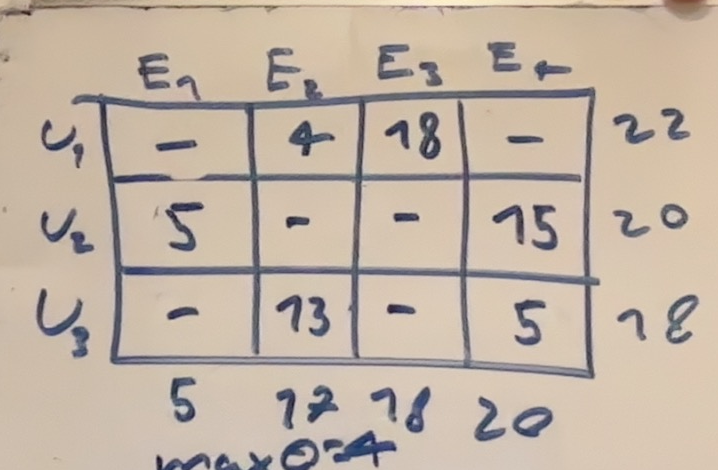 E1 E2 E3 E4
U1 - 4 18 - 22
U2 5 - - 15 20
U3 - 13 - 5 18
5 17 18 20
max θ=4